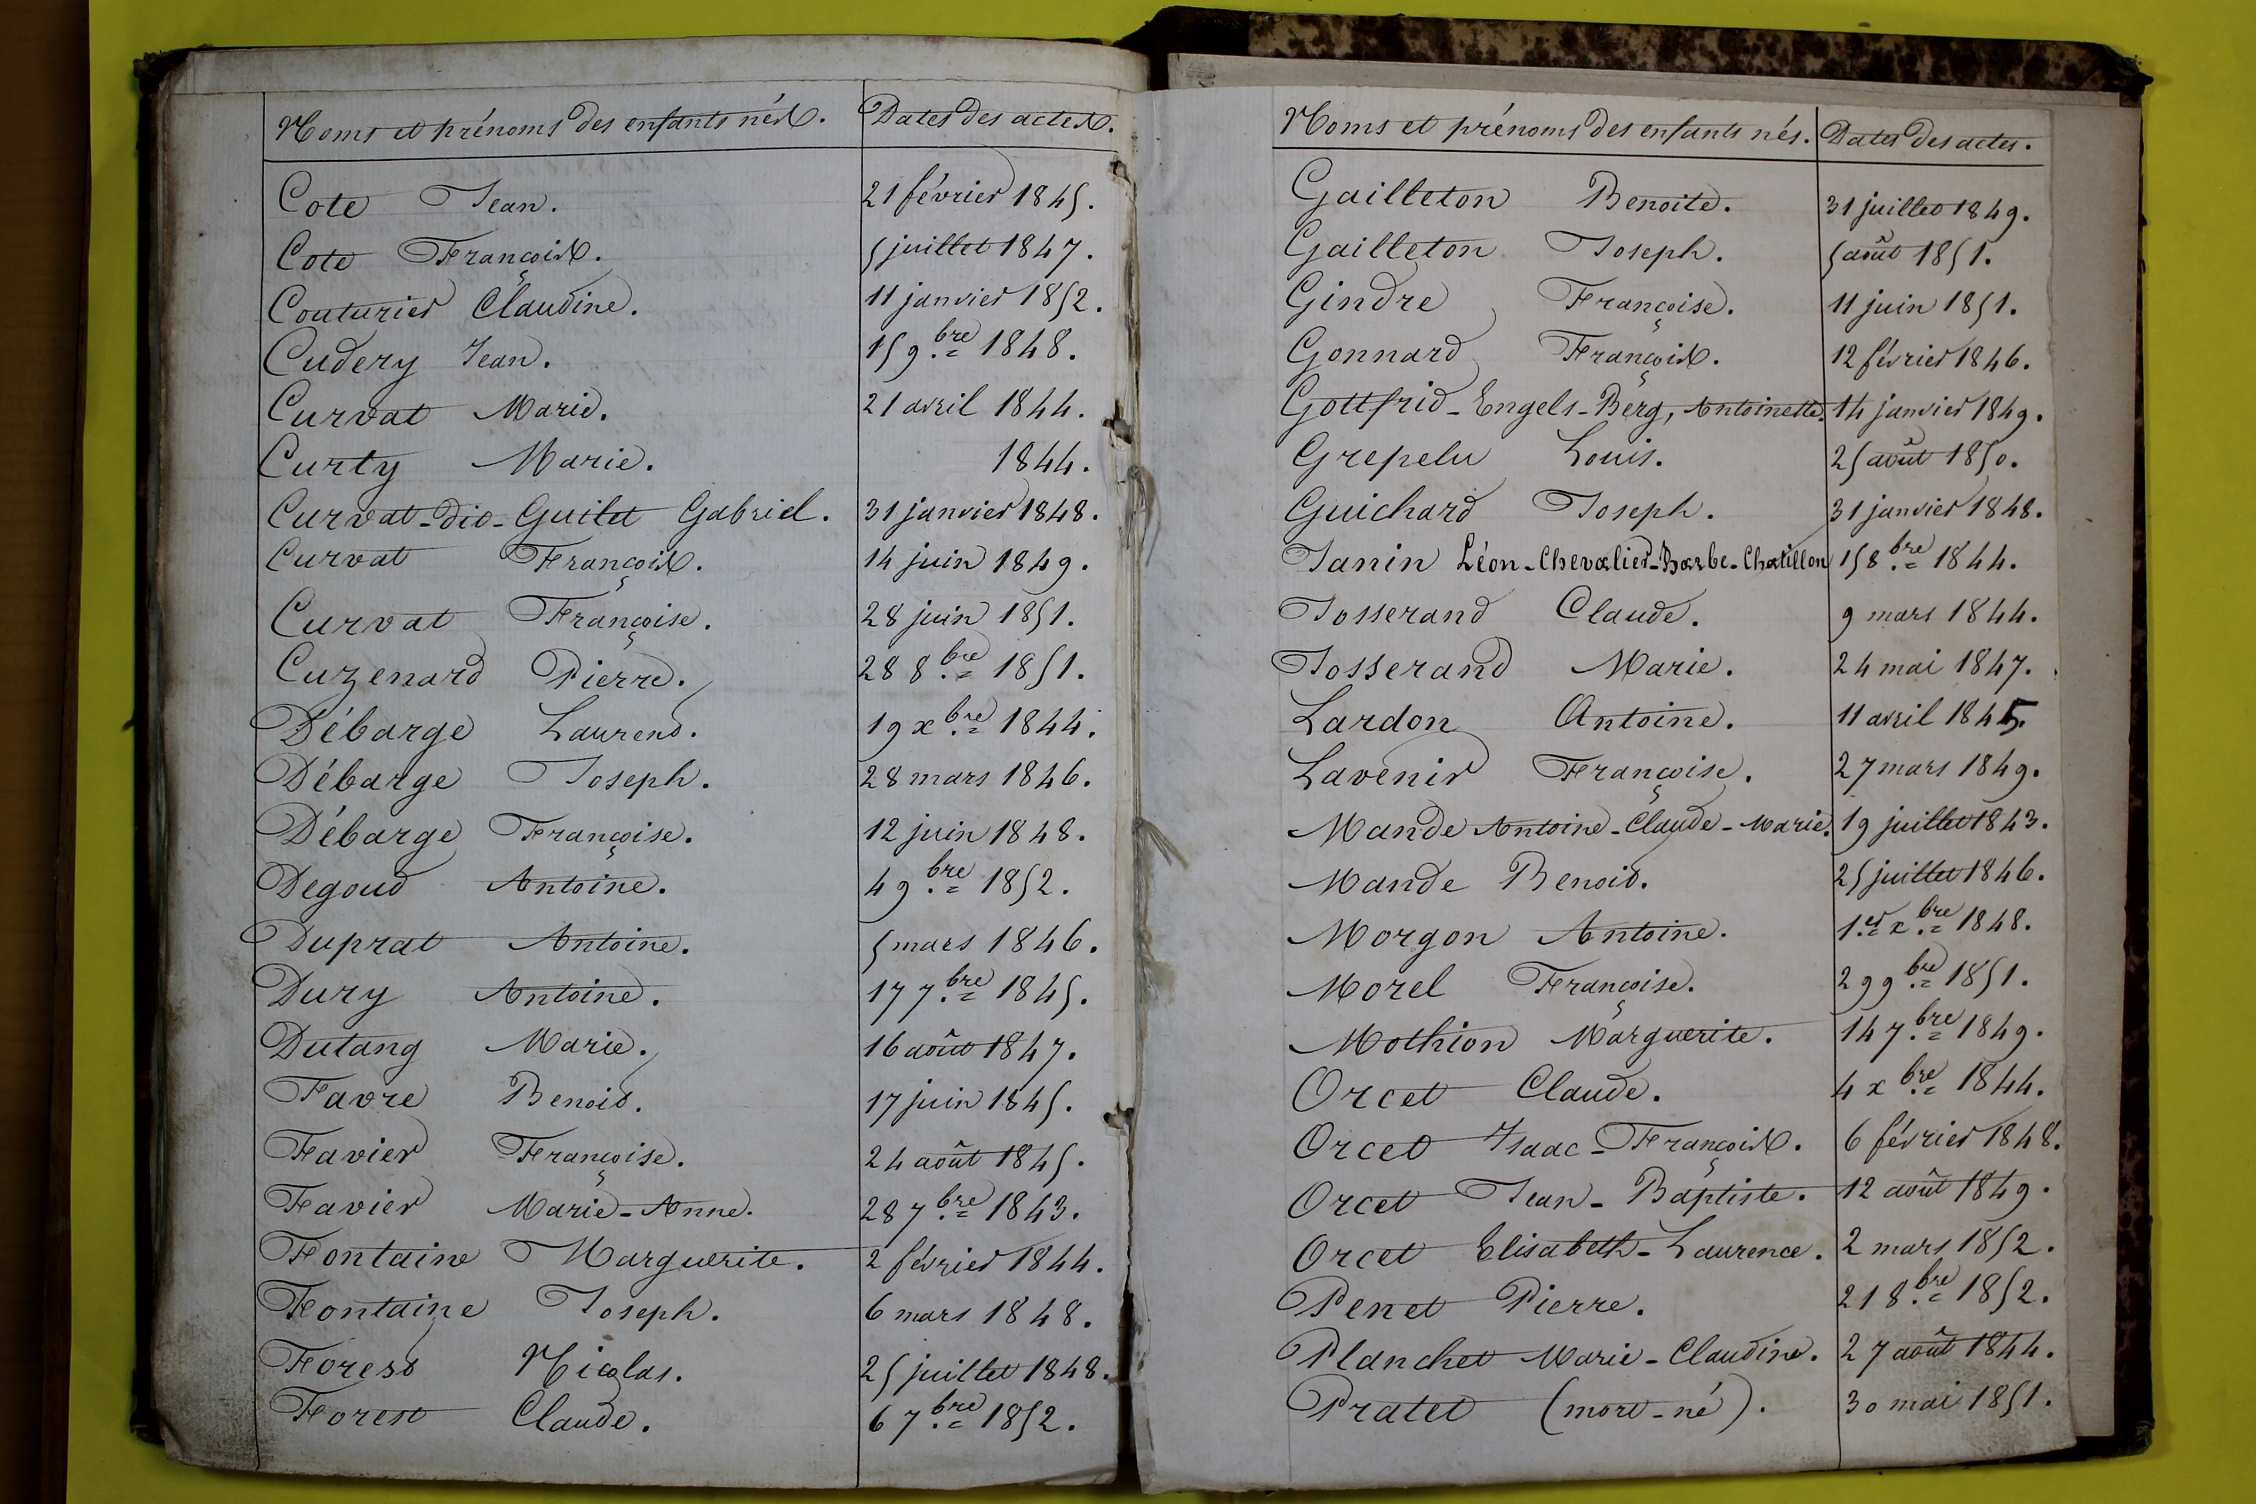 Noms et prénoms des enfants nés. Dates des actes.
Cote Jean. 21 février 1845.
Cote François. 5 juillet 1847.
Couturier Claudine. 11 janvier 1852.
Cudery Jean. 15 9.bre 1848.
Curvat Marie. 21 avril 1844.
Curty Marie. 1844.
Curvat-dit-Guilet Gabriel. 31 janvier 1848.
Curvat François. 14 juin 1849.
Curvat Françoise. 28 juin 1851.
Cuzenard Pierre. 28 8.bre 1851.
Débarge Laurent. 19 x.bre 1844.
Débarge Joseph. 28 mars 1846.
Débarge Françoise. 12 juin 1848.
Degoud Antoine. 4 9.bre 1852.
Duprat Antoine. 5 mars 1846.
Dury Antoine. 17 7.bre 1845.
Dutang Marie. 16 août 1847.
Favre Benoit. 17 juin 1845.
Favier Françoise. 24 août 1845.
Favier Marie-Anne. 28 7.bre 1843.
Fontaine Marguerite. 2 février 1844.
Fontaine Joseph. 6 mars 1848.
Forest Nicolas. 25 juillet 1848.
Forest Claude. 6 7.bre 1852.
Noms et prénoms des enfants nés. Dates des actes.
Gailleton Benoite. 31 juillet 1849.
Gailleton Joseph. 5 août 1851.
Gindre Françoise. 11 juin 1851.
Gonnard François. 12 février 1846.
Gottfrid-Engels-Berg, Antoinette. 14 janvier 1849.
Grepelu Louis. 25 août 1850.
Guichard Joseph. 31 janvier 1848.
Janin Léon-Chevalier-Barbe-Chatillon 15 8.bre 1844.
Josserand Claude. 9 mars 1844.
Josserand Marie. 24 mai 1847.
Lardon Antoine. 11 avril 1845.
Lavenir Françoise. 27 mars 1849.
Mande Antoine-Claude-Marie. 19 juillet 1843.
Mande Benoit. 25 juillet 1846.
Morgon Antoine. 1.er x.bre 1848.
Morel Françoise. 29 9.bre 1851.
Mothion Marguerite. 14 7.bre 1849.
Orcet Claude. 4 x.bre 1844.
Orcet Isaac-François. 6 février 1848.
Orcet Jean-Baptiste. 12 août 1849.
Orcet Elisabeth-Laurence. 2 mars 1852.
Penet Pierre. 21 8.bre 1852.
Planchet Marie-Claudine. 27 août 1844.
Pratet (mort-né). 30 mai 1851.